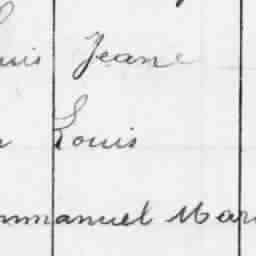 uis Jeane
Louis
mmanuel Mari